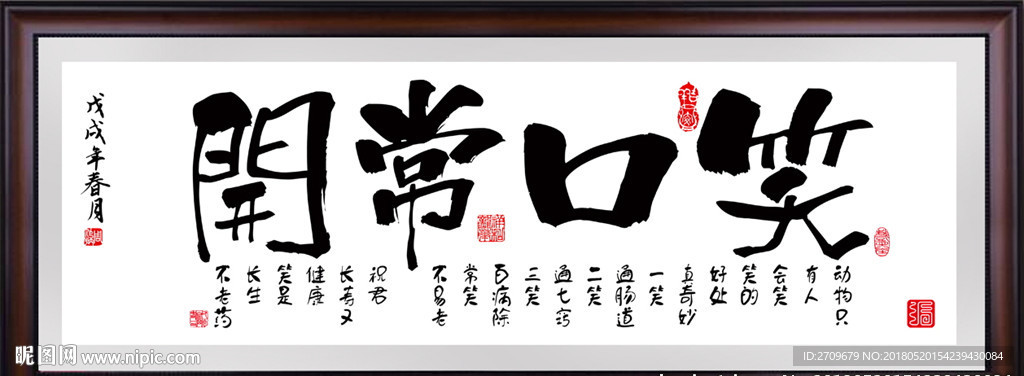 笑口常開
动物只
有人
会笑
笑的
好处
真奇妙
一笑
通肠道
二笑
通七窍
三笑
百病除
常笑
不易老
祝君
长寿又
健康
笑是
长生
不老药
戊戌年春月
昵图网 www.nipic.com
ID:2709679 NO:20180520154239430084